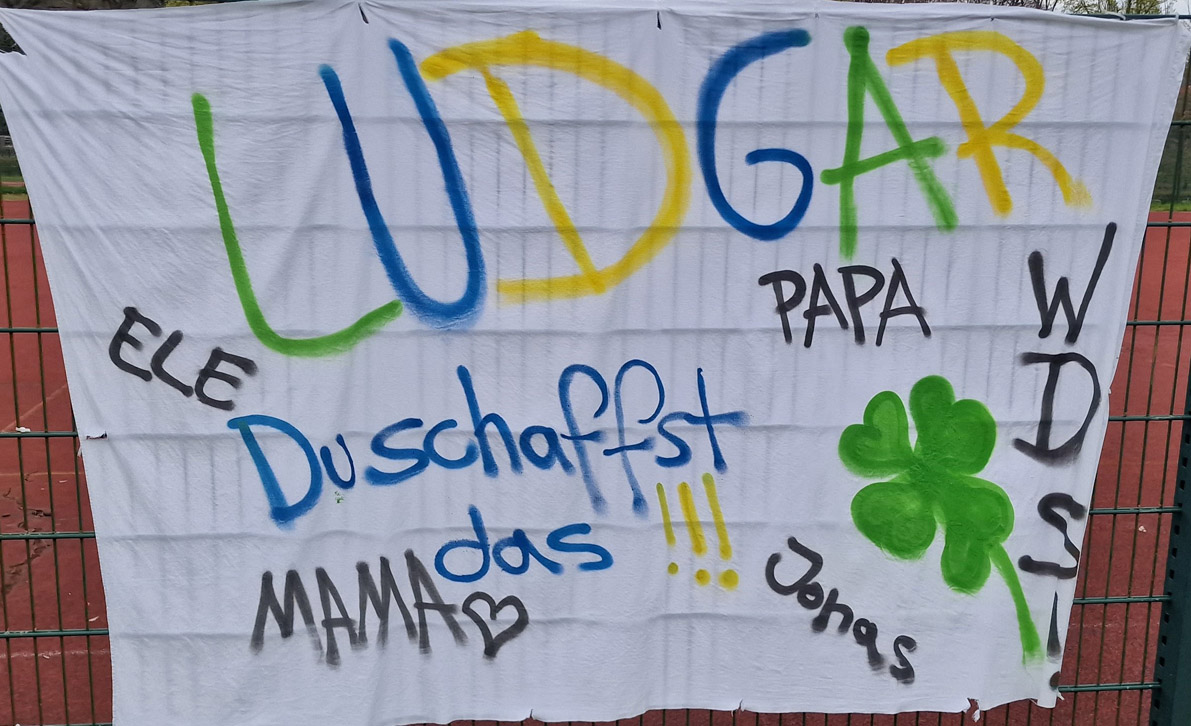 LUDGAR
PAPA
ELE
Du schaffst
das !!!
MAMA
Jonas
WDS!